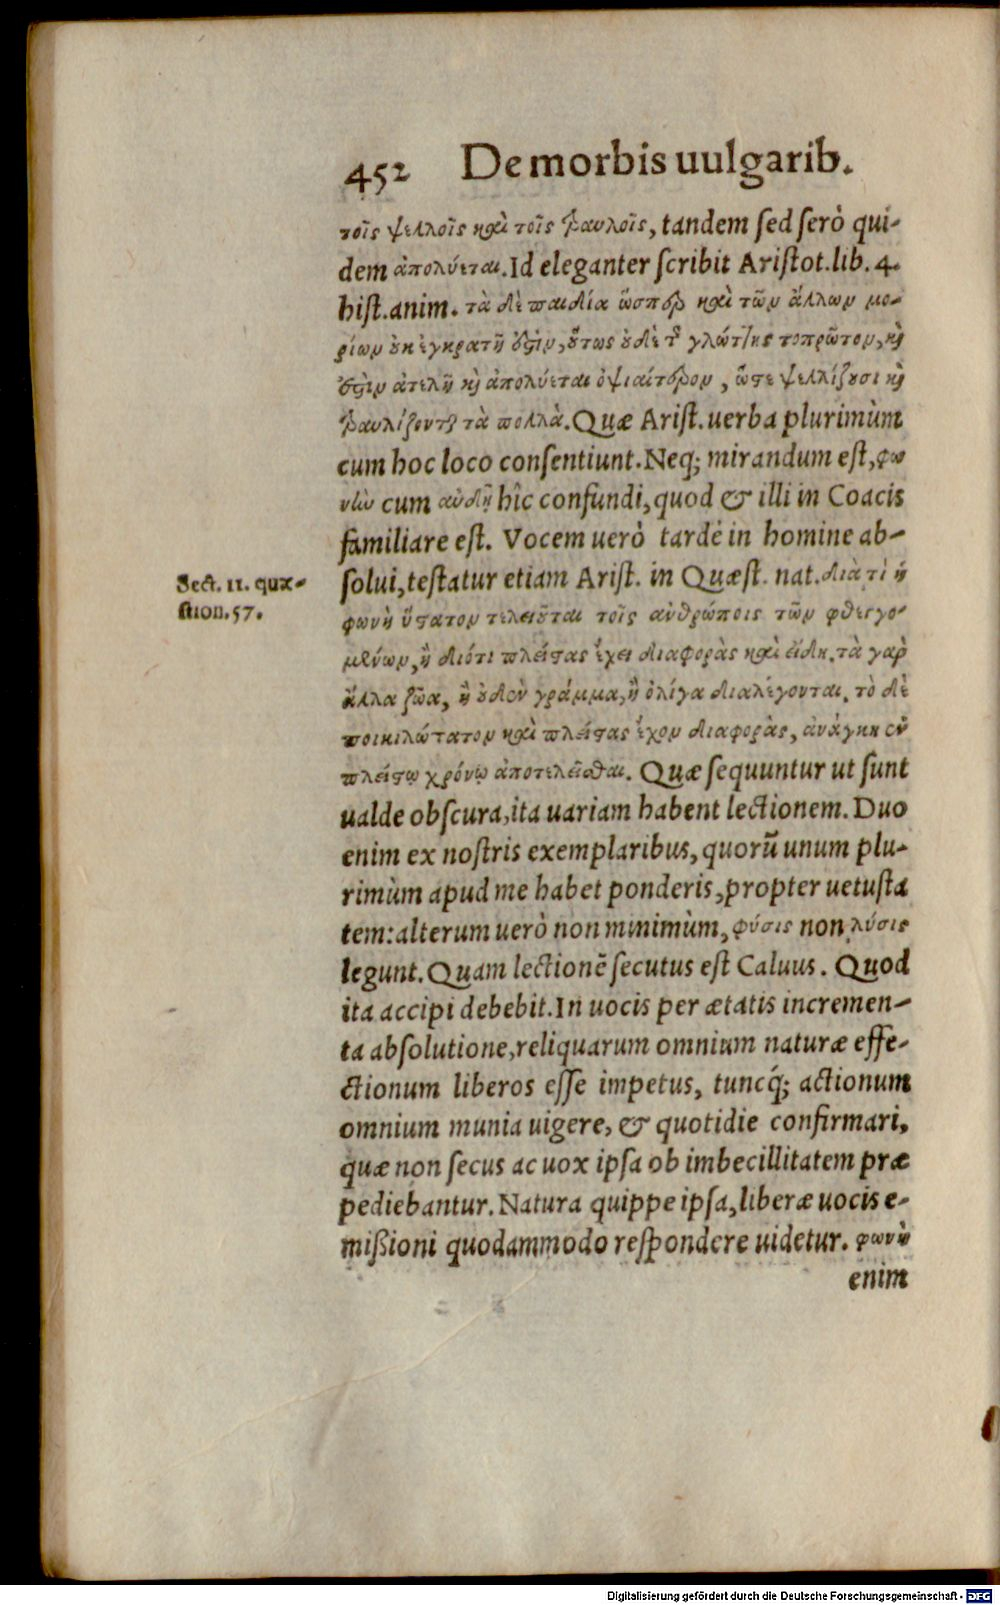 452 De morbis uulgarib.
τοῖς ψελλοῖς καὶ τοῖς τραυλοῖς, tandem sed serò qui-
dem ἀπολύεται. Id eleganter scribit Aristot. lib. 4.
hist. anim. τὰ δὲ παιδία ὥσπερ καὶ τῶν ἄλλων μο-
ρίων οὐκ ἐγκρατῆ ἐστιν, οὕτως οὐδὲ τῆς γλώττης τοπρῶτον, καὶ
ἐστιν ἀτελῆ καὶ ἀπολύεται ὀψιαίτερον, ὥστε ψελλίζουσι καὶ
τραυλίζουσι τὰ πολλὰ. Quæ Arist. uerba plurimùm
cum hoc loco consentiunt. Neq; mirandum est, φω
νὴν cum αὐδῇ hîc confundi, quod & illi in Coacis
familiare est. Vocem uerò tardè in homine ab-
solui, testatur etiam Arist. in Quæst. nat. διὰ τί ἡ
Sect. 11. quæ-
stion. 57.
φωνὴ ὕστατον τελειοῦται τοῖς ἀνθρώποις τῶν φθεγγο-
μένων, ἢ διότι πλείστας ἔχει διαφορὰς καὶ εἴδη. τὰ γὰρ
ἄλλα ζῶα, ἢ οὐδὲν γράμμα, ἢ ὀλίγα διαλέγονται. τὸ δὲ
ποικιλώτατον καὶ πλείστας ἔχον διαφορὰς, ἀνάγκη ἐν
πλείστῳ χρόνῳ ἀποτελεῖσθαι. Quæ sequuntur ut sunt
ualde obscura, ita uariam habent lectionem. Duo
enim ex nostris exemplaribus, quorũ unum plu-
rimùm apud me habet ponderis, propter uetusta
tem: alterum uerò non minimùm, φύσις non λύσις
legunt. Quam lectionẽ secutus est Caluus. Quod
ita accipi debebit. In uocis per ætatis incremen-
ta absolutione, reliquarum omnium naturæ effe-
ctionum liberos esse impetus, tuncq́; actionum
omnium munia uigere, & quotidie confirmari,
quæ non secus ac uox ipsa ob imbecillitatem præ
pediebantur. Natura quippe ipsa, liberæ uocis e-
mißioni quodammodo respondere uidetur. φωνὴ
enim
Digitalisierung gefördert durch die Deutsche Forschungsgemeinschaft - DFG